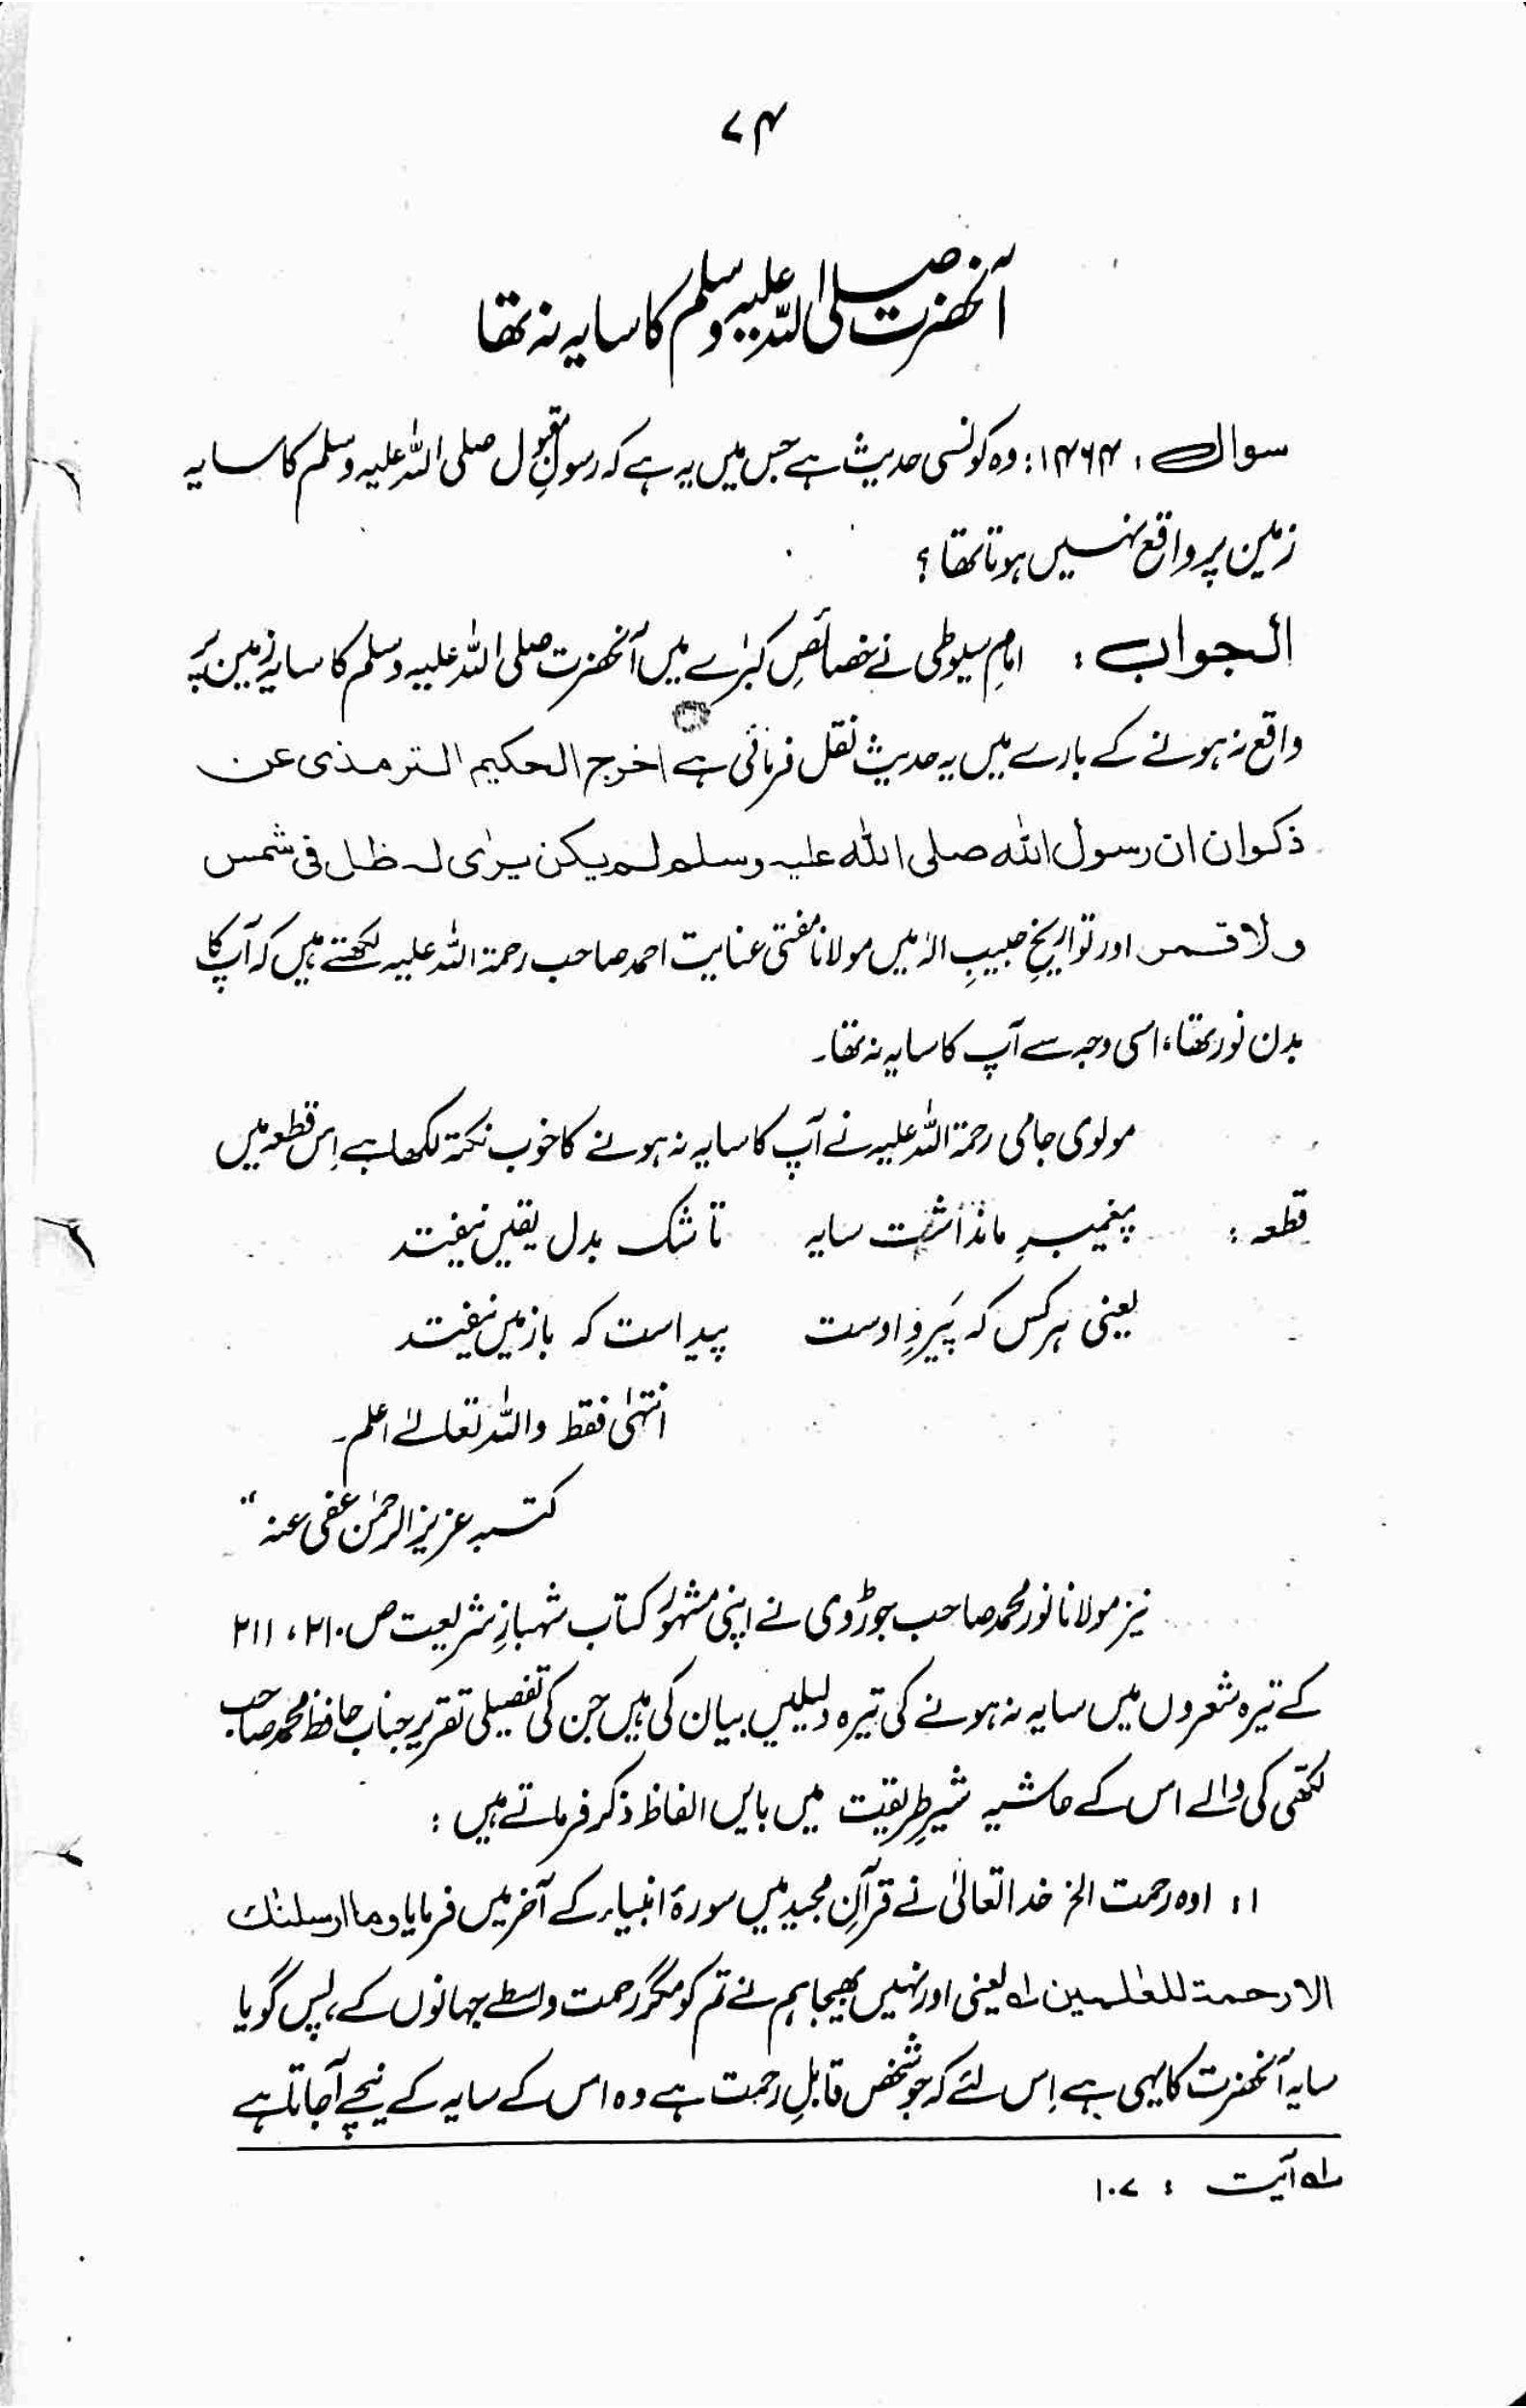 ۷۴
آنحضرت صلی اللہ علیہ وسلم کا سایہ نہ تھا
سوال : ۱۴۶۴ : وہ کونسی حدیث ہے جس میں یہ ہے کہ رسولِ مقبول صلی اللہ علیہ وسلم کا سایہ
زمین پر واقع نہیں ہوتا تھا ؟
الجواب : امام سیوطی نے خصائصِ کبرٰے میں آنحضرت صلی اللہ علیہ وسلم کا سایہ زمین پر
واقع نہ ہونے کے بارے میں یہ حدیث نقل فرمائی ہے اخرج الحکیم الترمذی عن
ذکوان ان رسول اللہ صلی اللہ علیہ وسلم لم یکن یرٰی لہ ظل فی شمس
ولا قمر اور تواریخِ حبیبِ الٰہ میں مولانا مفتی عنایت احمد صاحب رحمۃ اللہ علیہ لکھتے ہیں کہ آپ کا
بدن نور تھا، اسی وجہ سے آپ کا سایہ نہ تھا۔
مولوی جامی رحمۃ اللہ علیہ نے آپ کا سایہ نہ ہونے کا خوب نکتہ لکھا ہے اِس قطعہ میں
قطعہ : پیغمبرِ ما نداشت سایہ تا شک بدل یقیں نیفتد
یعنی ہر کس کہ پَیروِ اوست پیداست کہ با زمیں نیفتد
انتہٰی فقط واللہ تعالےٰ اعلم۔
کتبہ عزیز الرحمٰن عفی عنہ"
نیز مولانا نور محمد صاحب جوڑوی نے اپنی مشہور کتاب شہبازِ شریعت ص ۲۱۰، ۲۱۱
کے تیرہ شعروں میں سایہ نہ ہونے کی تیرہ دلیلیں بیان کی ہیں جن کی تفصیلی تقریر جناب حافظ محمد صاحب
لکھی کی والے اس کے حاشیہ شیرِ طریقت میں بایں الفاظ ذکر فرماتے ہیں :
۱: اوہ رحمت الخ خدا تعالیٰ نے قرآنِ مجید میں سورۂ انبیاء کے آخر میں فرمایا وما ارسلنٰک
الا رحمۃ للعٰلمین ۱ے یعنی اور نہیں بھیجا ہم نے تم کو مگر رحمت واسطے جہانوں کے، پس گویا
سایہ آنحضرت کا یہی ہے اِس لئے کہ جو شخص قابلِ رحمت ہے وہ اس کے سایہ کے نیچے آجاتا ہے
۱ے آیت : ۱۰۷